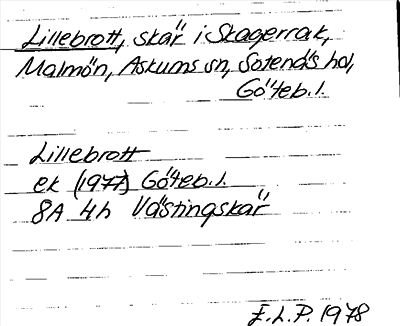 Lillebrott, skär i Skagerrak,
Malmön, Askums sn, Sotenäs hd,
Göteb.l.
Lillebrott
ek (1977) Göteb.l.
8A 4h Västingskär
E.L.P. 1978